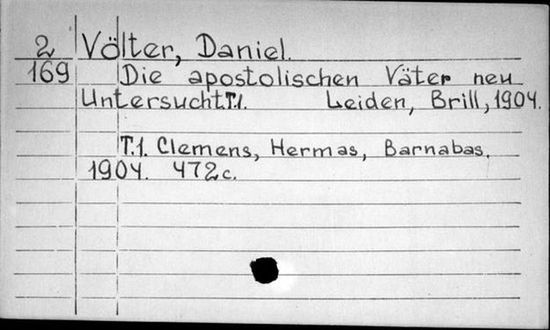 2 Völter, Daniel.
169 Die apostolischen Väter neu
Untersucht.T.1. Leiden, Brill, 1904.
T.1. Clemens, Hermas, Barnabas.
1904. 472c.